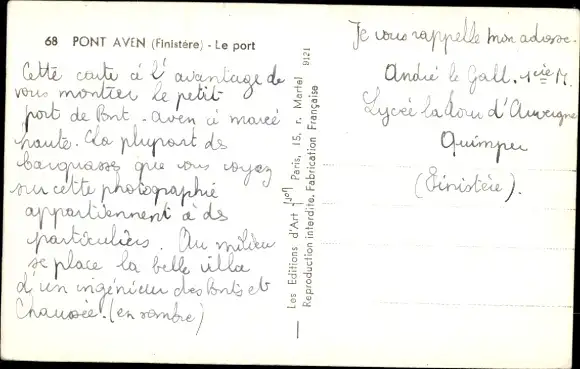 68 PONT AVEN (Finistère) - Le port
Cette carte à l'avantage de
vous montrer le petit
port de Pont-Aven à marée
haute. La plupart des
barquasses que vous voyez
sur cette photographie
appartiennent à des
particuliers. Au milieu
se place la belle villa
d'un ingénieur des Ponts et
Chaussée. (en rombre)
Les Editions d'Art "Jos" Paris, 15, r. Martel 9121
Reproduction interdite. Fabrication Française
Je vous rappelle mon adresse.
André le Gall. 1ère M.
Lycée la Tour d'Auvergne
Quimper
(Finistère).